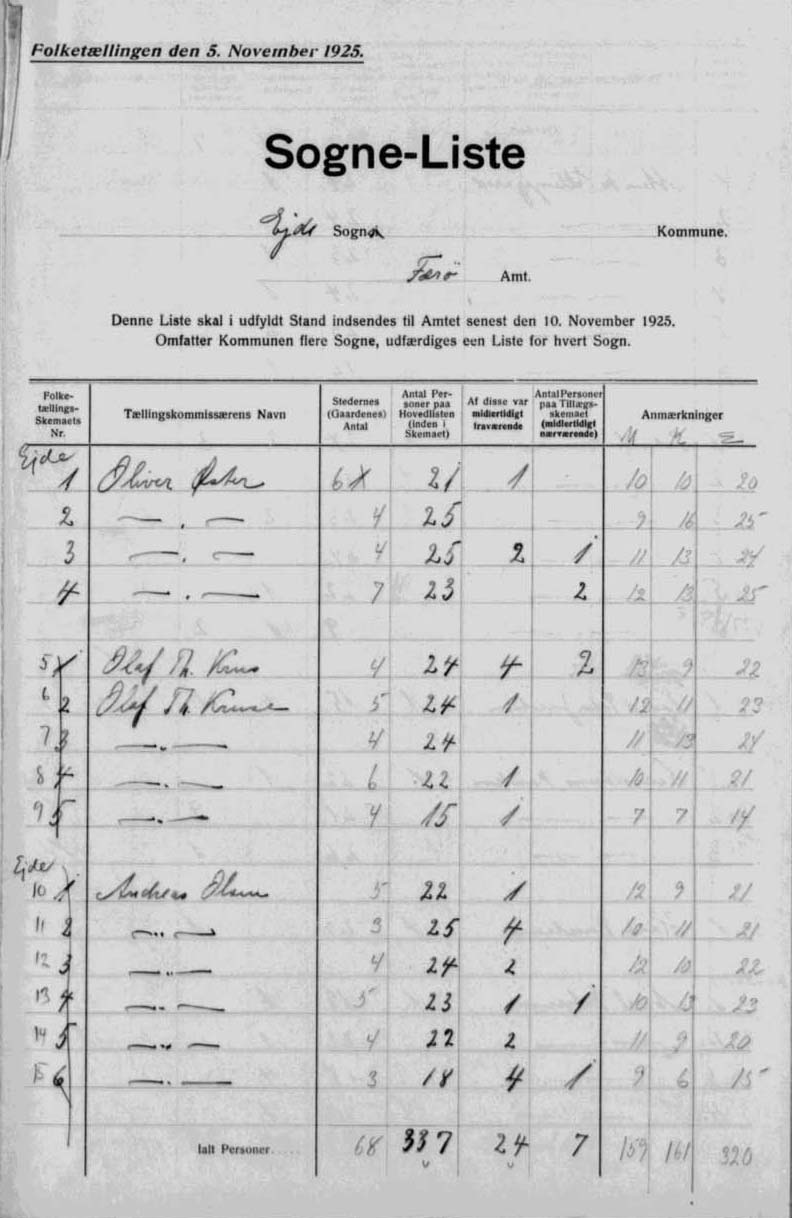 Folketællingen den 5. November 1925.
Sogne-Liste
Ejde Sogn Kommune.
Færö Amt.
Denne Liste skal i udfyldt Stand indsendes til Amtet senest den 10. November 1925.
Omfatter Kommunen flere Sogne, udfærdiges een Liste for hvert Sogn.
Folketællings-Skemaets Nr. Tællingskommissærens Navn Stedernes (Gaardenes) Antal Antal Personer paa Hovedlisten (inden i Skemaet) Af disse var midlertidigt fraværende Antal Personer paa Tillægsskemaet (midlertidigt nærværende) Anmærkninger
M K
Ejde
1 Oliver Øster 6 21 1 — 10 10 20
2 — „ — 4 25 9 16 25
3 — „ — 4 25 2 1 11 13 24
4 — „ — 7 23 2 12 13 25
5 Olaf Th. Krus 4 24 4 2 13 9 22
6 2 Olaf Th. Kruse 5 24 1 12 11 23
7 3 — „ — 4 24 11 13 24
8 4 — „ — 6 22 1 10 11 21
9 5 — „ — 4 15 1 7 7 14
Ejde
10 1 Andreas Olsen 5 22 1 12 9 21
11 2 — „ — 3 25 4 10 11 21
12 3 — „ — 4 24 2 12 10 22
13 4 — „ — 5 23 1 1 10 13 23
14 5 — „ — 4 22 2 11 9 20
15 6 — „ — 3 18 4 1 9 6 15
Ialt Personer 68 337 24 7 159 161 320